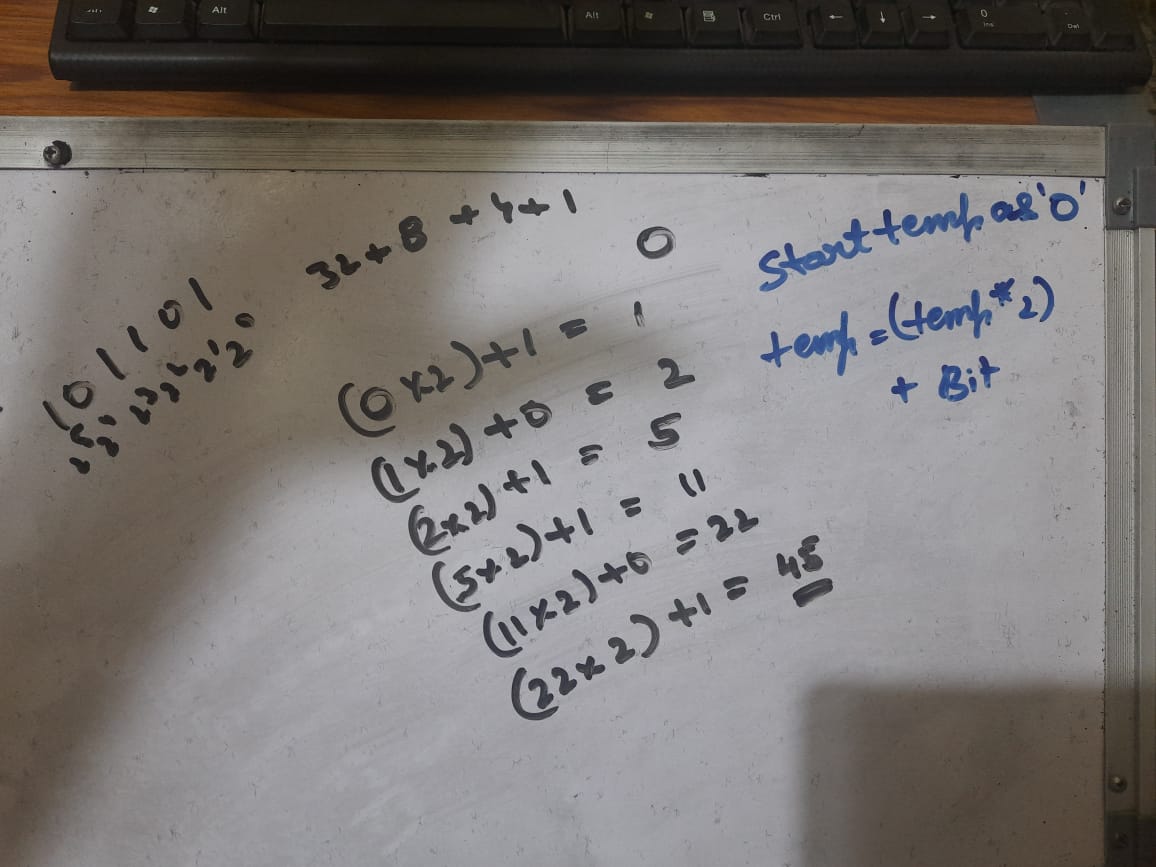 Alt
Alt
Ctrl
←
↓
→
0
Ins
Del
32+8+4+1
101101
2⁵2⁴2³2²2¹2⁰
0
(0x2)+1 = 1
(1x2)+0 = 2
(2x2)+1 = 5
(5x2)+1 = 11
(11x2)+0 = 22
(22x2)+1 = 45
Start temp as '0'
temp = (temp * 2)
+ Bit